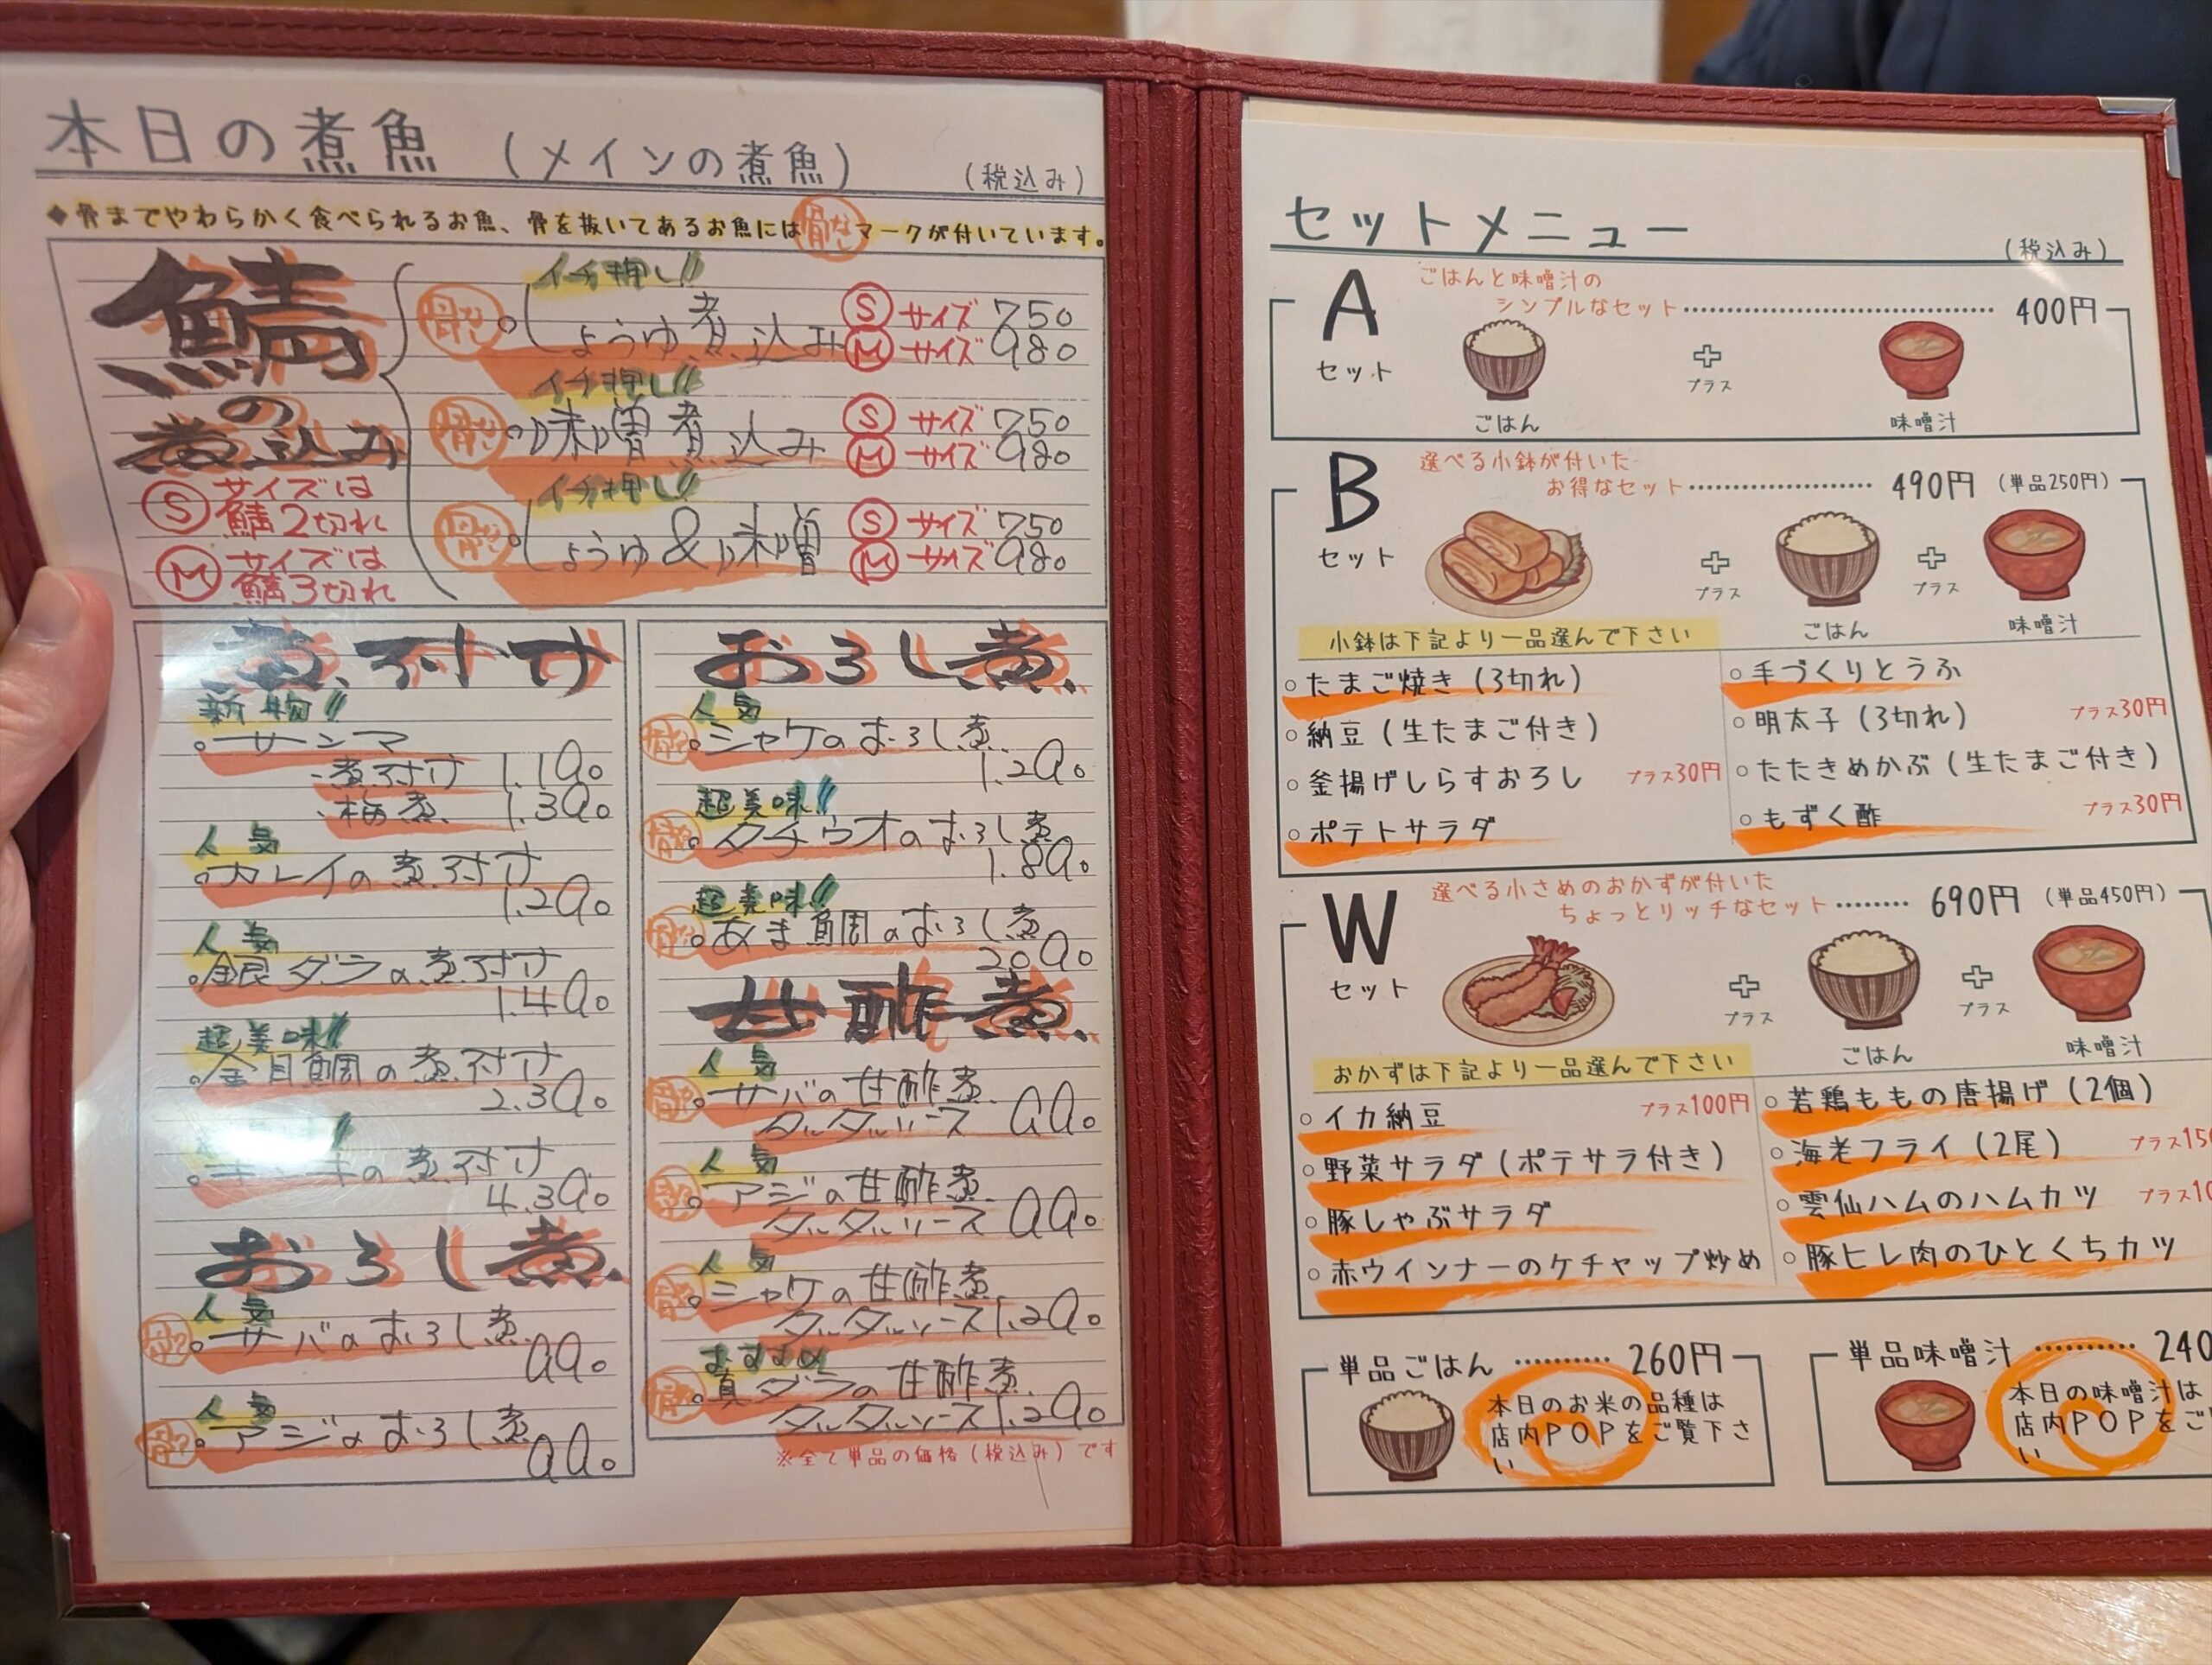 本日の煮魚 (メインの煮魚) (税込み)
◆骨までやわらかく食べられるお魚、骨を抜いてあるお魚には骨なしマークが付いています。
鯖
の
煮込み
Sサイズは
鯖2切れ
Mサイズは
鯖3切れ
イチ押し!!
骨なし 。しょうゆ煮込み Sサイズ 750
Mサイズ 980
イチ押し!!
骨なし 。味噌煮込み Sサイズ 750
Mサイズ 980
イチ押し!!
骨なし 。しょうゆ&味噌 Sサイズ 750
Mサイズ 980
煮付け
新物!!
。サンマ
・煮付け 1.190
・梅煮 1.390
人気
。カレイの煮付け
1.290
人気
。銀ダラの煮付け
1.490
超美味!!
。金目鯛の煮付け
2.390
の煮付け
4.390
おろし煮
人気
骨なし 。サバのおろし煮
990
人気
骨なし 。アジのおろし煮
990
おろし煮
人気
骨なし 。シャケのおろし煮
1.290
超美味!!
骨なし 。タチウオのおろし煮
1.890
超美味!!
骨なし 。あま鯛のおろし煮
2090
甘酢煮
人気
骨なし 。サバの甘酢煮
タルタルソース 990
人気
骨なし 。アジの甘酢煮
タルタルソース 990
人気
骨なし 。シャケの甘酢煮
タルタルソース 1.290
おすすめ
骨なし 。真ダラの甘酢煮
タルタルソース 1.290
※全て単品の価格(税込み)です
セットメニュー
(税込み)
A
セット
ごはんと味噌汁の
シンプルなセット 400円
ごはん
プラス
味噌汁
B
セット
選べる小鉢が付いた
お得なセット 490円 (単品250円)
プラス
ごはん
プラス
味噌汁
小鉢は下記より一品選んで下さい
○たまご焼き(3切れ)
○納豆(生たまご付き)
○釜揚げしらすおろし プラス30円
○ポテトサラダ
○手づくりとうふ
○明太子(3切れ) プラス30円
○たたきめかぶ(生たまご付き)
プラス30円
○もずく酢
W
セット
選べる小さめのおかずが付いた
ちょっとリッチなセット 690円 (単品450円)
プラス
ごはん
プラス
味噌汁
おかずは下記より一品選んで下さい
○イカ納豆 プラス100円
○野菜サラダ(ポテサラ付き)
○豚しゃぶサラダ
○赤ウインナーのケチャップ炒め
○若鶏ももの唐揚げ(2個)
○海老フライ(2尾) プラス15
○雲仙ハムのハムカツ プラス10
○豚ヒレ肉のひとくちカツ
単品ごはん 260円
本日のお米の品種は
店内POPをご覧下さ
い
単品味噌汁 240
本日の味噌汁は
店内POPをご
い